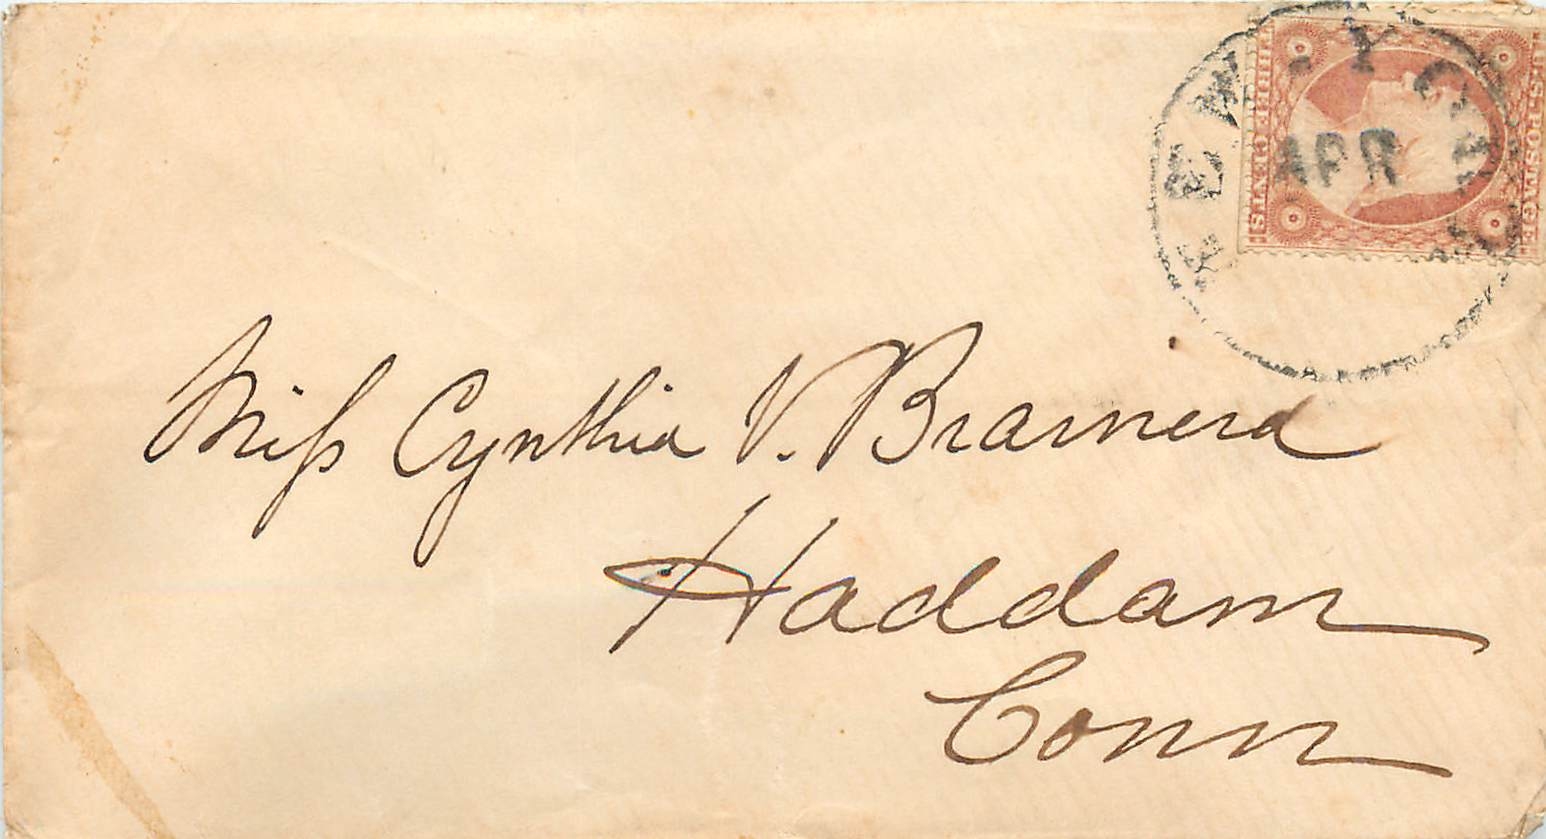 NEW-YORK
APR
U.S. POSTAGE
THREE CENTS
Miss Cynthia V. Brainerd
Haddam
Conn